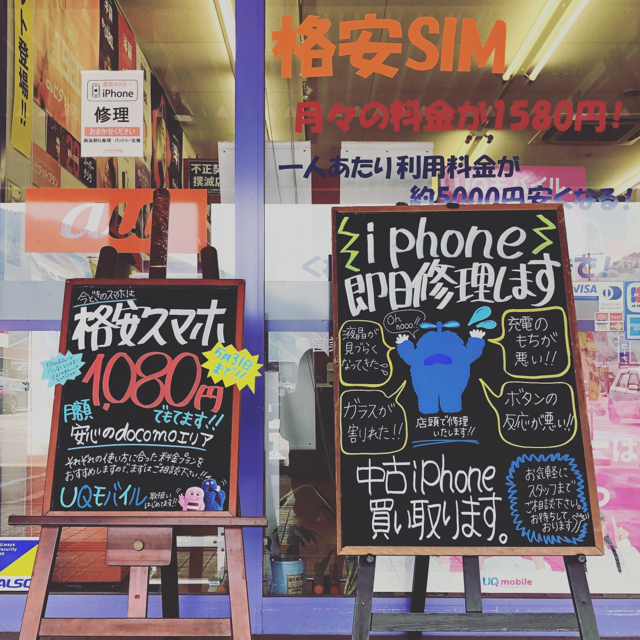 格安SIM
月々の料金が1580円!
一人あたり利用料金が
約5000円安くなる!
iPhone
修理
おまかせください
不正契約
撲滅店
au
今どきのスマホは
格安スマホ
1,080円
5月31日
まで!!
月額
でもてます!!
安心のdocomoエリア
それぞれの使い方に合った料金プランを
おすすめしますので、まずはご相談下さい!!
UQモバイル
取扱い
はじめます!!
iphone
即日修理します
Oh
nooo!!
液晶が
見づらく
なってきた
充電の
もちが
悪い!!
ガラスが
割れた!!
ボタンの
反応が悪い!!
店頭で修理
いたします!!
中古iPhone
買い取ります。
お気軽に
スタッフまで
ご相談下さい。
お待ちして
おります
VISA
ALSOK
UQ mobile